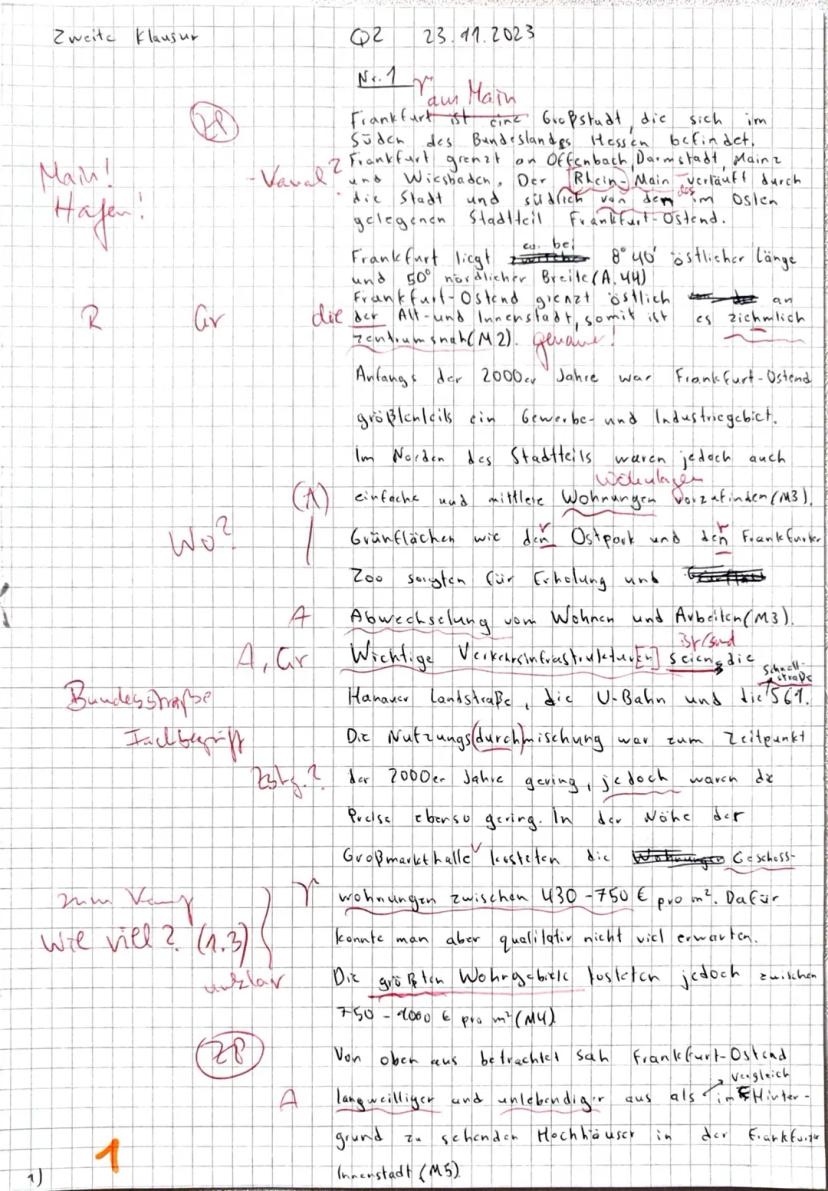 Zweite Klausur Q2 23.11.2023
Nr. 1
am Main
Frankfurt ist eine Großstadt, die sich im
Süden des Bundeslandes Hessen befindet.
Frankfurt grenzt an Offenbach, Darmstadt, Mainz
Main! und Wiesbaden. Der Rhein-Main verläuft durch
Hafen! die Stadt und südlich von dem des im Osten
gelegenen Stadtteil Frankfurt-Ostend.
ca. bei
Frankfurt liegt 8°40' östlicher Länge
und 50° nördlicher Breite (A.44)
Frankfurt-Ostend grenzt östlich an
R Gr die der Alt- und Innenstadt, somit ist es ziehmlich
zentrumsnah (M2). genauer!
Anfangs der 2000er Jahre war Frankfurt-Ostend
größtenteils ein Gewerbe- und Industriegebiet.
Im Norden des Stadtteils waren jedoch auch
Wohnlagen
(A) einfache und mittlere Wohnungen vorzufinden (M3).
Wo? Grünflächen wie den Ostpark und den Frankfurter
Zoo sorgten für Erholung und
A Abwechselung vom Wohnen und Arbeiten (M3).
ist/sind
A, Gr Wichtige Verkehrsinfrastrukturen seien die
Schnellstraße
Bundesstraße Hanauer Landstraße, die U-Bahn und die 561.
Fachbegriff Die Nutzungs(durch)mischung war zum Zeitpunkt
Zshg.? der 2000er Jahre gering, jedoch waren die
Preise ebenso gering. In der Nähe der
Großmarkthalle kosteten die Geschoss-
wohnungen zwischen 430-750 € pro m². Dafür
Wie viel? (1.3) konnte man aber qualitativ nicht viel erwarten.
unklar Die größten Wohngebiete kosteten jedoch zwischen
750 - 1000 € pro m² (M4)
Von oben aus betrachtet sah Frankfurt-Ostend
Vergleich
A langweilliger und unlebendiger aus als im Hinter-
grund zu sehenden Hochhäuser in der Frankfurter
1 Innenstadt (M5).
1)